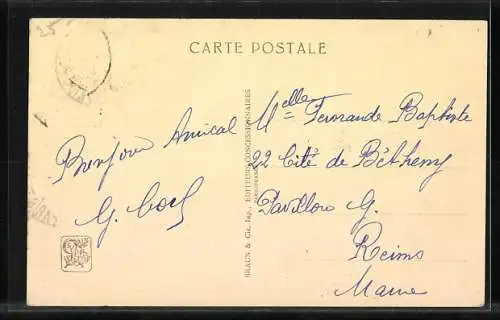 25
CARTE POSTALE
Bonjour Amical
G.
BRAUN & Cie, Imp., EDITEURS-CONCESSIONNAIRES
Melle Fernande Baptiste
22 Cité de Bétheny
Pavillon G.
Reims
Marne